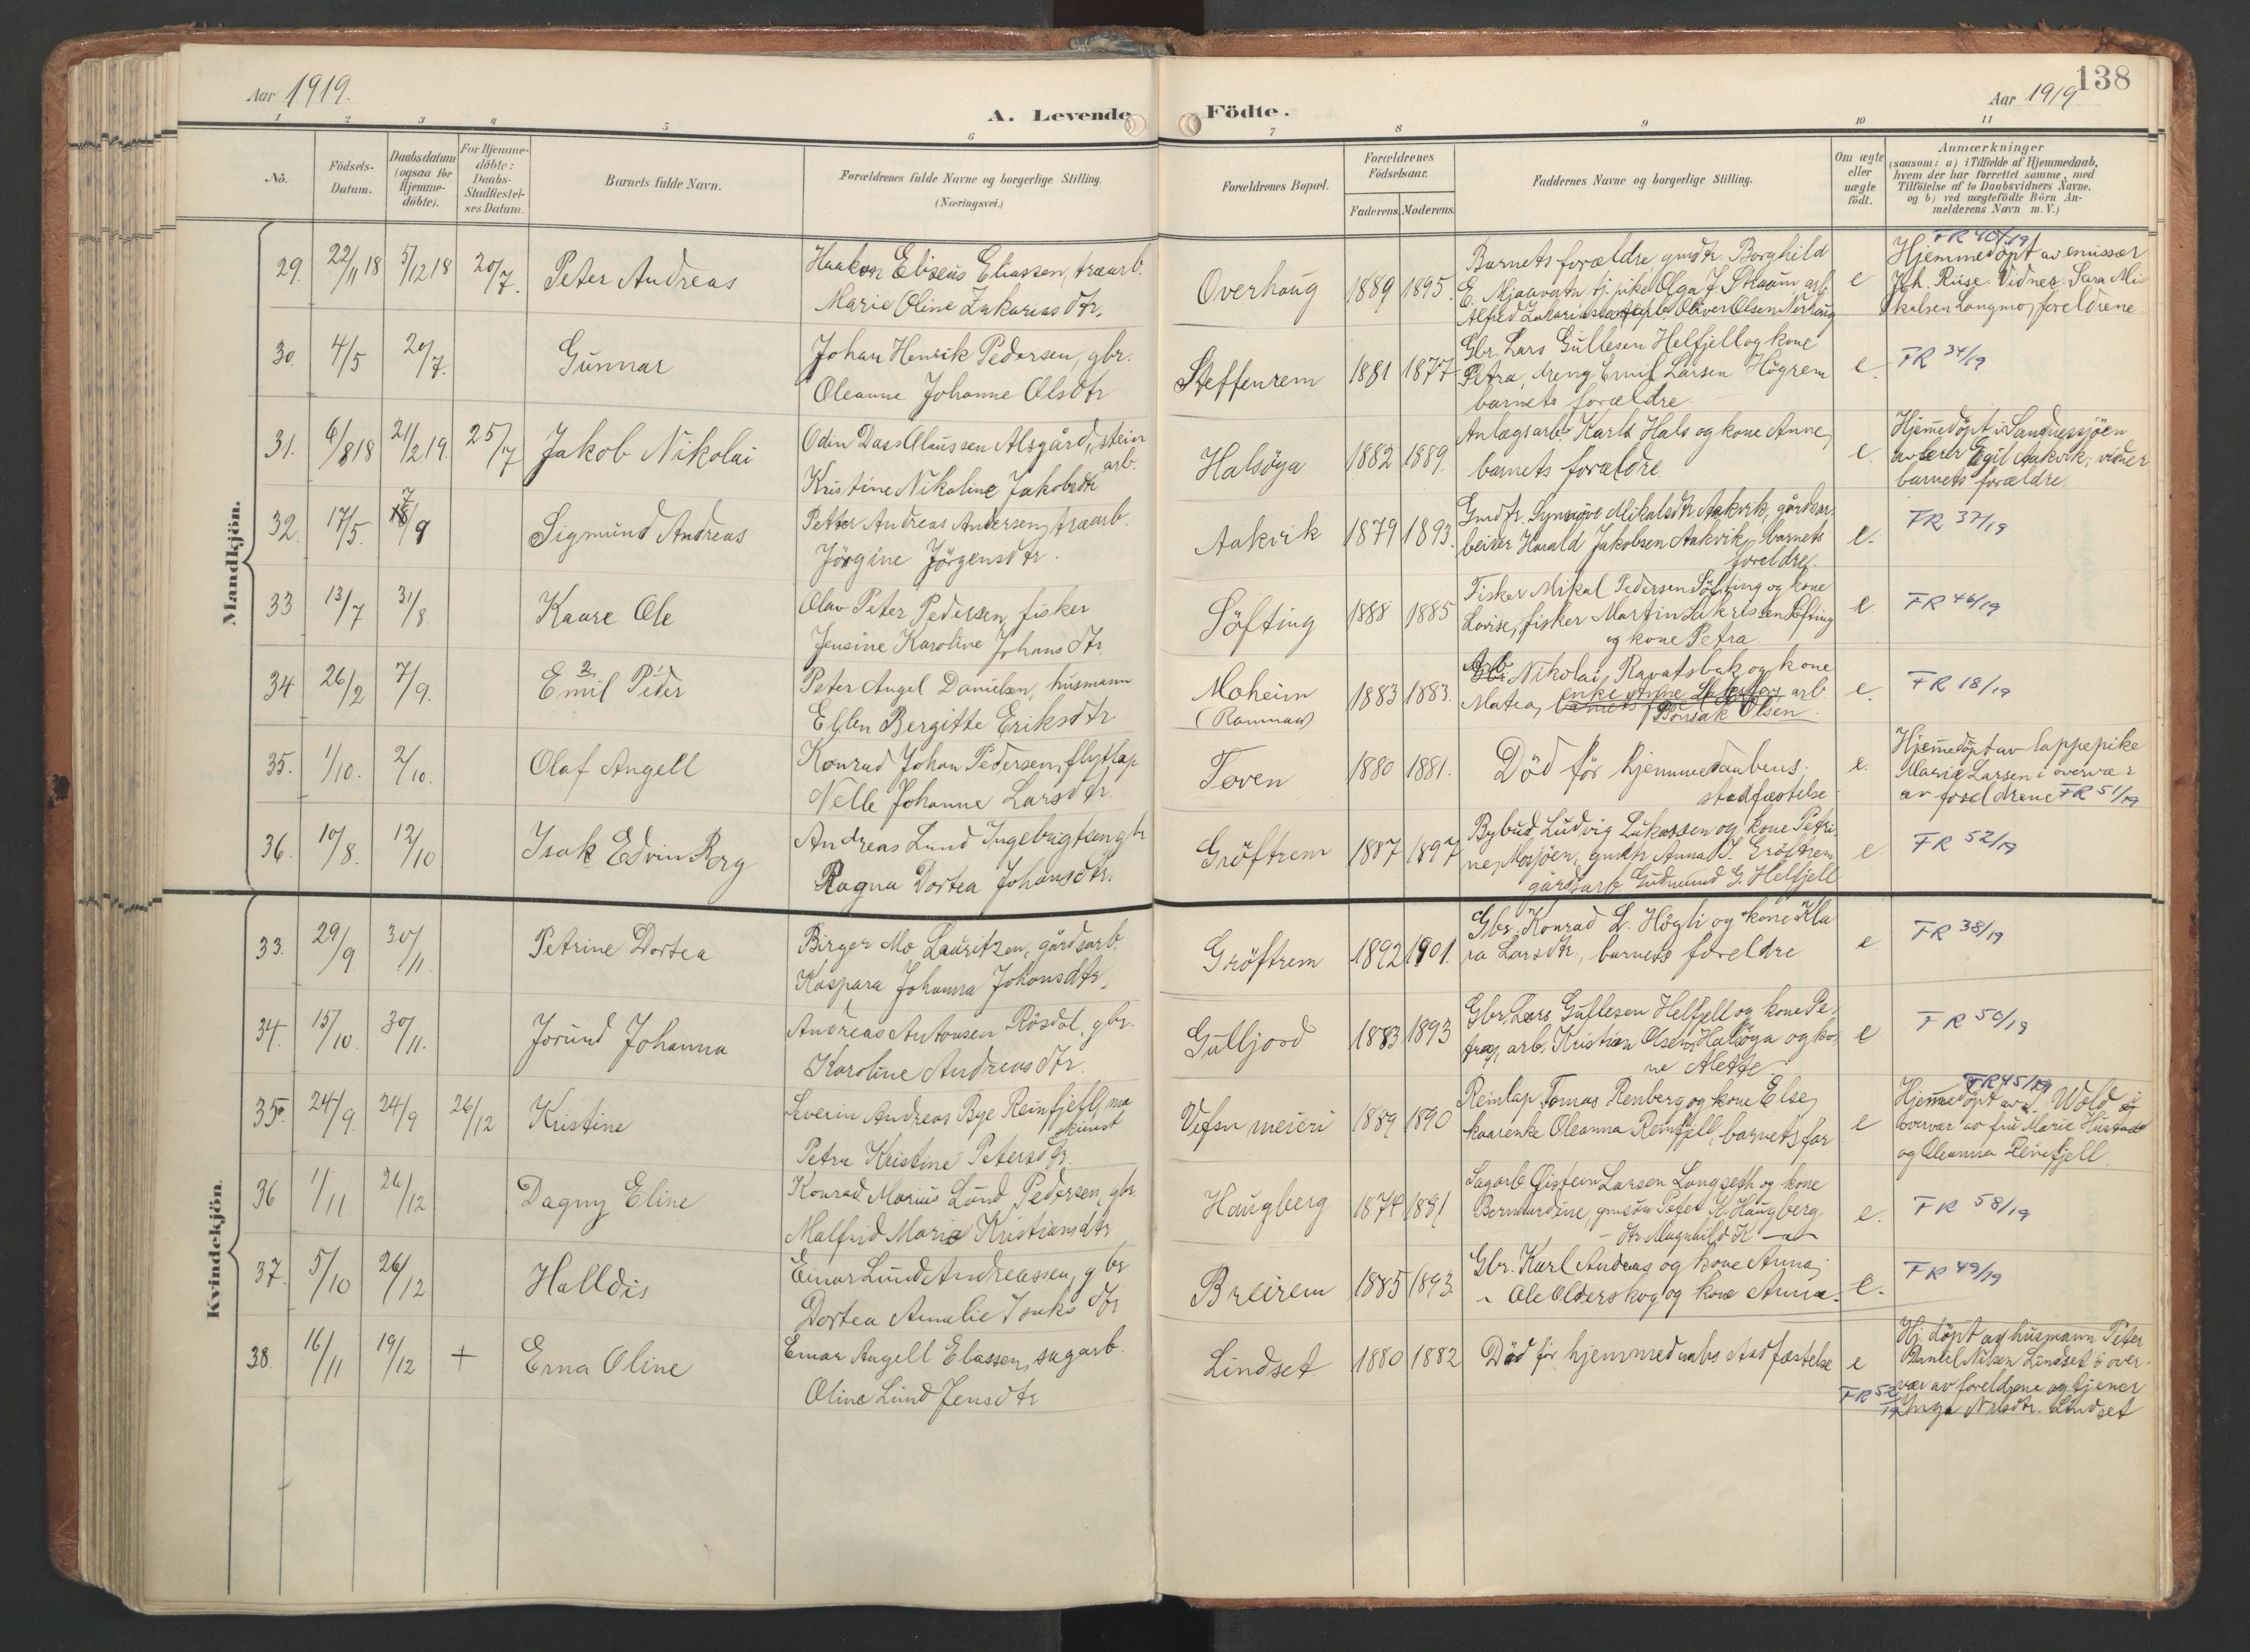 Aar 1919.
A. Levende Födte.
Aar 1919
138
1 2 3 4 5 6 7 8 9 10 11
No.
Födsels-Datum.
Daabsdatum (ogsaa for Hjemme-döbte).
For Hjemme-döbte: Daabs-Stadfæstel-ses Datum.
Barnets fulde Navn.
Forældrenes fulde Navne og borgerlige Stilling.
(Næringsvei.)
Forældrenes Bopæl.
Forældrenes Födselsaar.
Faderens. Moderens.
Faddernes Navne og borgerlige Stilling.
Om ægte eller uægte födt.
Anmærkninger
(saasom: a) i Tilfælde af Hjemmedaab,
hvem der har forrettet samme, med
Tilföielse af to Daabsvidners Navne,
og b) ved uægtefödte Börn An-
melderens Navn m. V.)
Mandkjön.
29. 22/11 18 5/12 18 20/7. Peter Andreas
Haakon Eliseus Eliassen, traarb.
Marie Oline Zakariasdtr.
Overhaug 1889 1895.
Barnets forældre gmdtr. Borghild
E. tj. pike Olga J. arb.
Alfred Oliver Olsen
e
FR 40/19
Hjemmedöpt av emissær
Joh. Ruse. Vidner: Sara Mi
kalsen Langmo, foreldrene
30. 4/5 20/7. Gunnar
Johan Henrik Pedersen, gbr.
Oleanne Johanne Olsdtr
Steffenrem 1881 1877
Gbr. Lars Gullesen Helfjell og kone
Petra, dreng Emil Larsen Högrem
barnets forældre.
e. FR 34/19
31. 6/8 18 21/2 19. 25/7 Jakob Nikolai
Odin Dass Claussen Alsgård, stein
arb.
Kristine Nikoline Jakobsdtr
Halsöya 1882 1889.
Anlægsarb. Karl Hals og kone Anne,
barnets forældre.
e.
Hjemmedöpt i Sandnessjöen
av lærer Egil Aakvik, vidner
barnets forældre.
32. 17/5. 7/9 Sigmund Andreas
Petter Andreas Andersen, traarb.
Jörgine Jörgensdtr.
Aakvik 1879 1893.
Gmdtr. Synnöve Mikalsdtr Aakvik, gårdsar
beider Harald Jakobsen Aakvik, barnets
foreldre.
e. FR 37/19
33 13/7 31/8. Kaare Ole
Olav Peter Pedersen, fisker
Jensine Karoline Johansdtr.
Söfting 1888 1885
Fisker Mikal Pedersen Söfting og kone
Lovise, fisker Martin Söfting
og kone Petra.
e. FR 46/19
34 26/2 7/9. Emil Peder
2 1
Peter Angel Danielsen, husmann
Ellen Bergitte Eriksdtr
Moheim
1883 1883.
Arb. Nikolai Ravatsbak og kone
Matea, arb
Olsen
e. FR 18/19
35. 1/10. 2/10. Olaf Angell
Konrad Johan Pedersen, flytlap
Nelle Johanne Larsdtr.
Toven 1880 1881.
Död för hjemmedaabens
stadfæstelse
e.
Hjemmedöpt av lappepike
Maria Larsen i overvær
av foreldrene FR 51/19
36. 10/8. 12/10 Isak Edvin Berg
Andreas Lund Ingebrigtsen gbr
Ragna Dortea Johansdtr.
Gröftrem 1887 1897
Bybud Ludvig Lukassen og kone Petri
ne, Mosjöen, gmdtr Anna I. Gröftrem
gårdsarb Gudmund G. Helfjell
e. FR 52/19
Kvindekjön.
33. 29/9. 30/11. Petrine Dortea
Birger Mo Lauritzen, gårdsarb.
Kaspara Johanna Johansdtr.
Gröftrem 1892 1901.
Gbr. Konrad L. Högli og kone Kla
ra Larsdtr, barnets foreldre
e. FR 38/19
34. 15/10. 30/11. Jorund Johanna
Andreas Antonsen Rösdal, gbr.
Karoline Andreasdtr.
Gulljord 1883 1893
Gbr. Lars Gullesen Helfjell og kone Pe,
tra, arb. Kristian Olsen Halsöya og ko,
ne Alette
e FR 50/19
35. 24/9. 24/9 26/12 Kristine
Severin Andreas Bye Reinfjell, ma
skinist
Petra Kristine Petersdtr.
Vefsn meieri 1889 1890
Reinlap Tomas Renberg og kone Else,
kaarenke Oleanna Reinfjell, barnets far
e
FR 45/19
Hjemmedöpt av S. Wold i
overvær av fru Marie Hustad
og Oleanna Reinfjell.
36 1/11 26/12 Dagny Eline
Konrad Marius Lund Pedersen, gbr.
Malfrid Maria Kristiansdtr
Haugberg 1874 1881
Sagarb Øistein Larsen Langseth og kone
Bernhardine, gmsön Peter K. Haugberg
- dtr Magnhild K —"—
e. FR 58/19
37. 5/10 26/12 Halldis
Einar Lund Andreassen, gbr
Dortea Amalie Isaksdtr
Breirem 1885 1893.
Gbr. Karl Andreas og kone Anna,
" Ole Olderskog og kone Anna.
e. FR 49/19
38. 16/11 19/12 + Erna Oline
Einar Angell Eliassen, sagarb.
Oline Lund Jensdtr
Lindset 1880 1882
Död för hjemmedaabs stadfæstelse
e
FR 52/19
Hj. döpt av husmann Peter
Daniel Nilsen Lindset i over-
vær av foreldrene og tjener
Inga Nilsdtr. Lindset